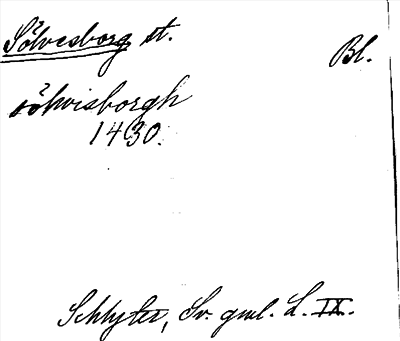 Sölvesborg st.
Bl.
sölvisborgh
1430.
Schlyter, Sv. gml. L. IX.